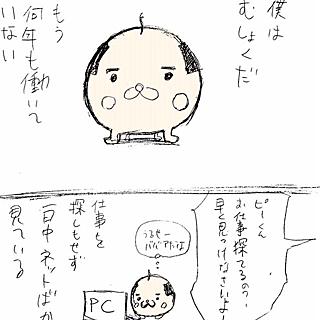 僕は
むしょくだ
もう
何年も働いて
いない
ピーくん
お仕事探してるの?
早く見つけなさいよー
うるせー
ババアだな
仕事を
探しもせず
一日中ネットばか
見ている
PC